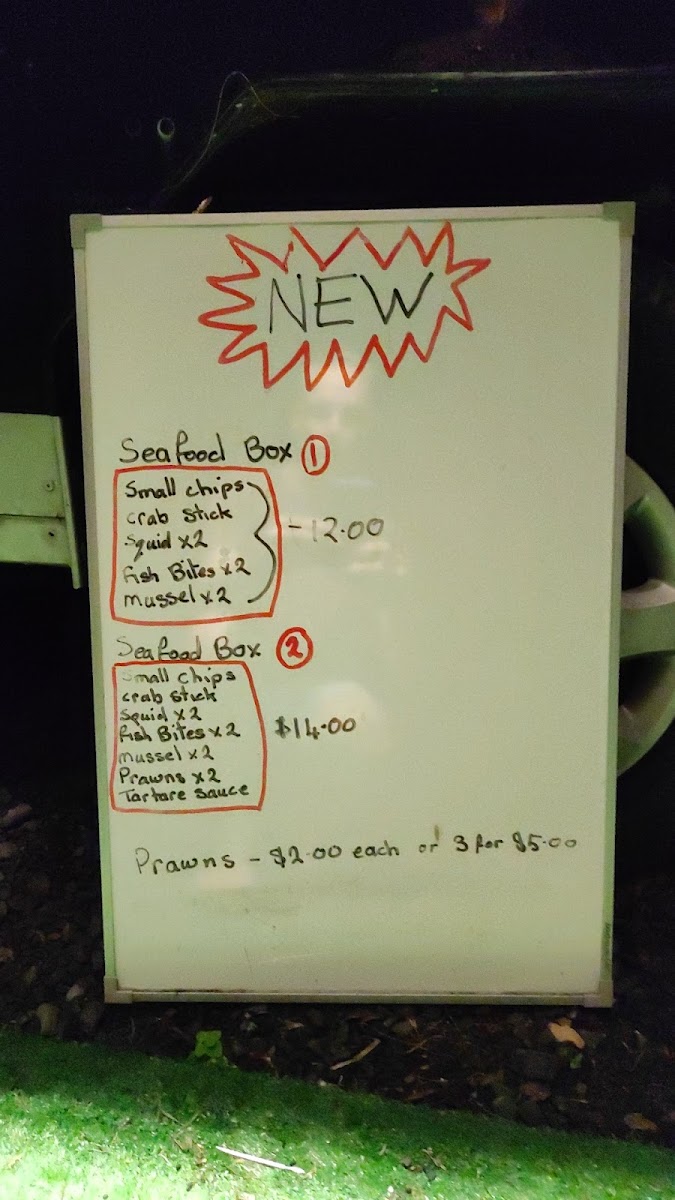 NEW
Seafood Box 1
Small chips
crab stick
Squid x2
fish Bites x2
mussel x2
- 12.00
Seafood Box 2
Small chips
crab stick
Squid x2
fish Bites x2
mussel x2
Prawns x2
Tartare sauce
$14.00
Prawns - $2.00 each or 3 for $5.00